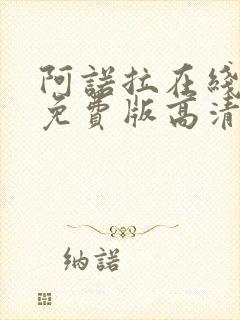 阿諾拉在綫
免費版高清
納諾